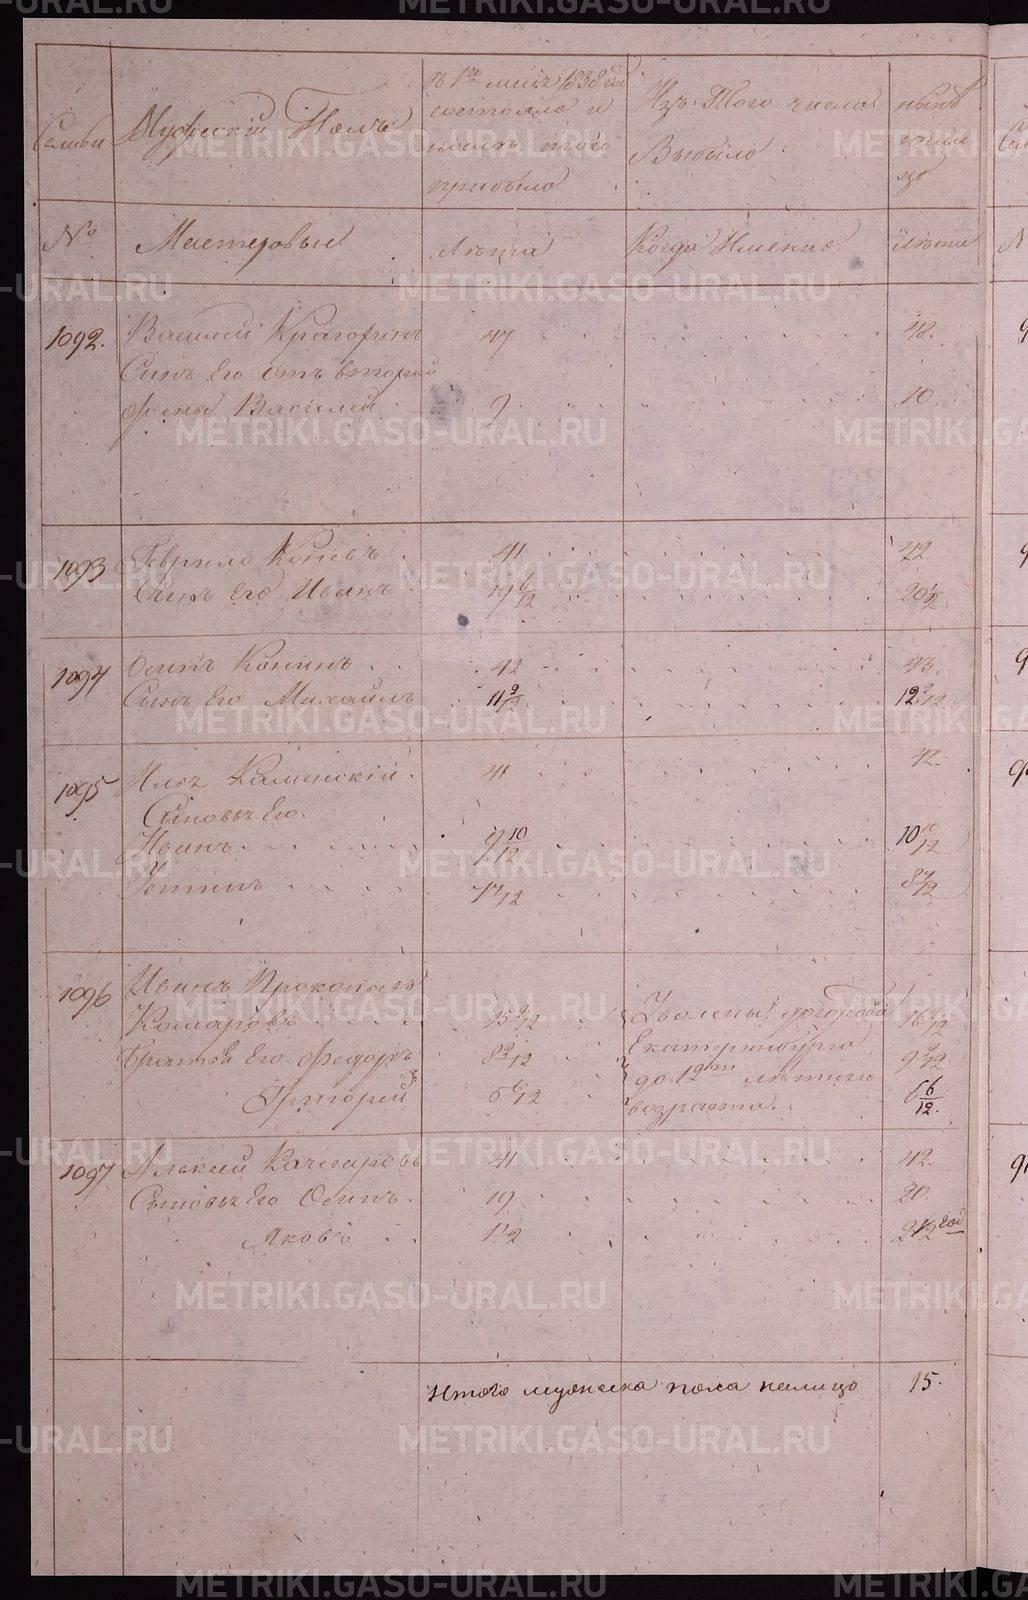 Семьи
Мужескій Полъ
съ 1го маія 1838 году
состояло и
послѣ того
прибыло
Изъ Того числа
Выбыло
нынѣ
на ли
цо
№
Мастеровыя
Лѣта
Когда Именно
лѣта
1092. Василей Крагофинъ 47 48.
Сынъ Его Отъ второй
жены Василей 9 10
1093 Гаврило Коневъ 41 42
Сынъ Его Иванъ 19 6/12 20 6/12
1094 Осипъ Конинъ 42 43.
Сынъ Его Михаилъ 11 9/12 12 9/12
1095 Илья Каменскій 41 42.
Сыновья Его.
Иванъ 9 10/12 10 10/12
Устинъ 7 7/12 8 7/12
1096 Иванъ Прокопьевъ
Комаровъ 15 9/12 Уволены города 16 9/12
Екатеринбурга
Братья Его Федоръ 8 9/12 9 9/12
до 12ти лѣтняго
Григорей 5 6/12 возраста. 6 6/12
1097 Алексей Качегаровъ 41 42.
Сыновья Его Осипъ 19 20.
Яковъ 1 1/2 2 1/2 год
Итого мужеска пола налицо 15.
METRIKI.GASO-URAL.RU